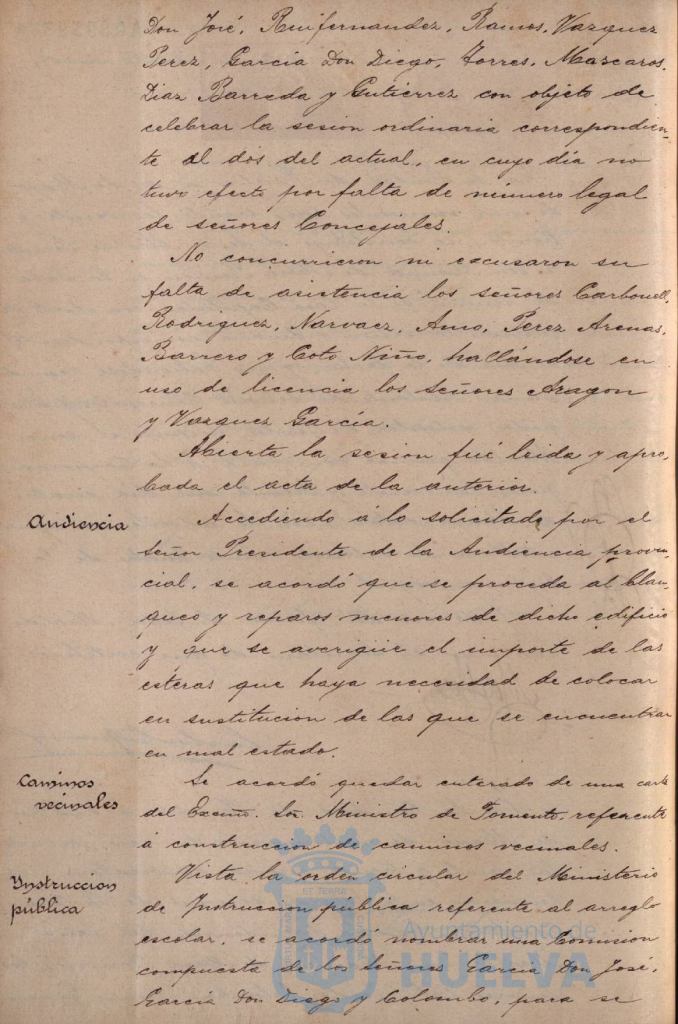 Don José, Ruifernandez, Ramos, Vazquez
Perez, García Don Diego, Torres, Mascaros,
Diaz Barreda y Gutierrez con objeto de
celebrar la sesion ordinaria correspondien-
te al dos del actual, en cuyo día no
tuvo efecto por falta de número legal
de señores Concejales.
No concurrieron ni excusaron su
falta de asistencia los señores Carbonell,
Rodriguez, Narvaez, Amo, Perez Arenas,
Barrero y Coto Niño, hallándose en
uso de licencia los Señores Aragon
y Vazquez García.
Abierta la sesion fué leida y apro-
bada el acta de la anterior.
Audiencia
Accediendo á lo solicitado por el
Señor Presidente de la Audiencia provin-
cial, se acordó que se proceda al blan-
queo y reparos menores de dicho edificio
y que se averigüe el importe de las
esteras que haya necesidad de colocar
en sustitucion de las que se encuentran
en mal estado.
Caminos
vecinales
Se acordó quedar enterado de una carta
del Excmo. Sor. Ministro de Fomento, referente
á construccion de caminos vecinales.
Instruccion
pública
Vista la orden circular del Ministerio
de Instruccion pública referente al arreglo
escolar, se acordó nombrar una Comision
compuesta de los Señores García Don José,
García Don Diego y Colombo, para se
Ayuntamiento de
HUELVA